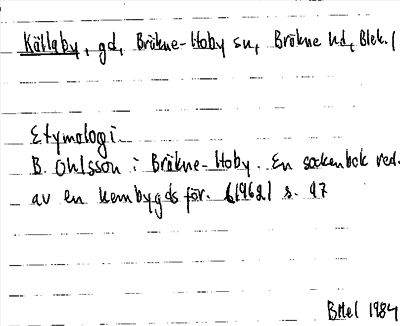 Källeby, gd, Bräkne-Hoby sn, Bräkne hd, Blek. l
Etymologi
B. Ohlsson i Bräkne-Hoby. En sockenbok red.
av en hembygdsför. (1962) s. 47
BHel 1984